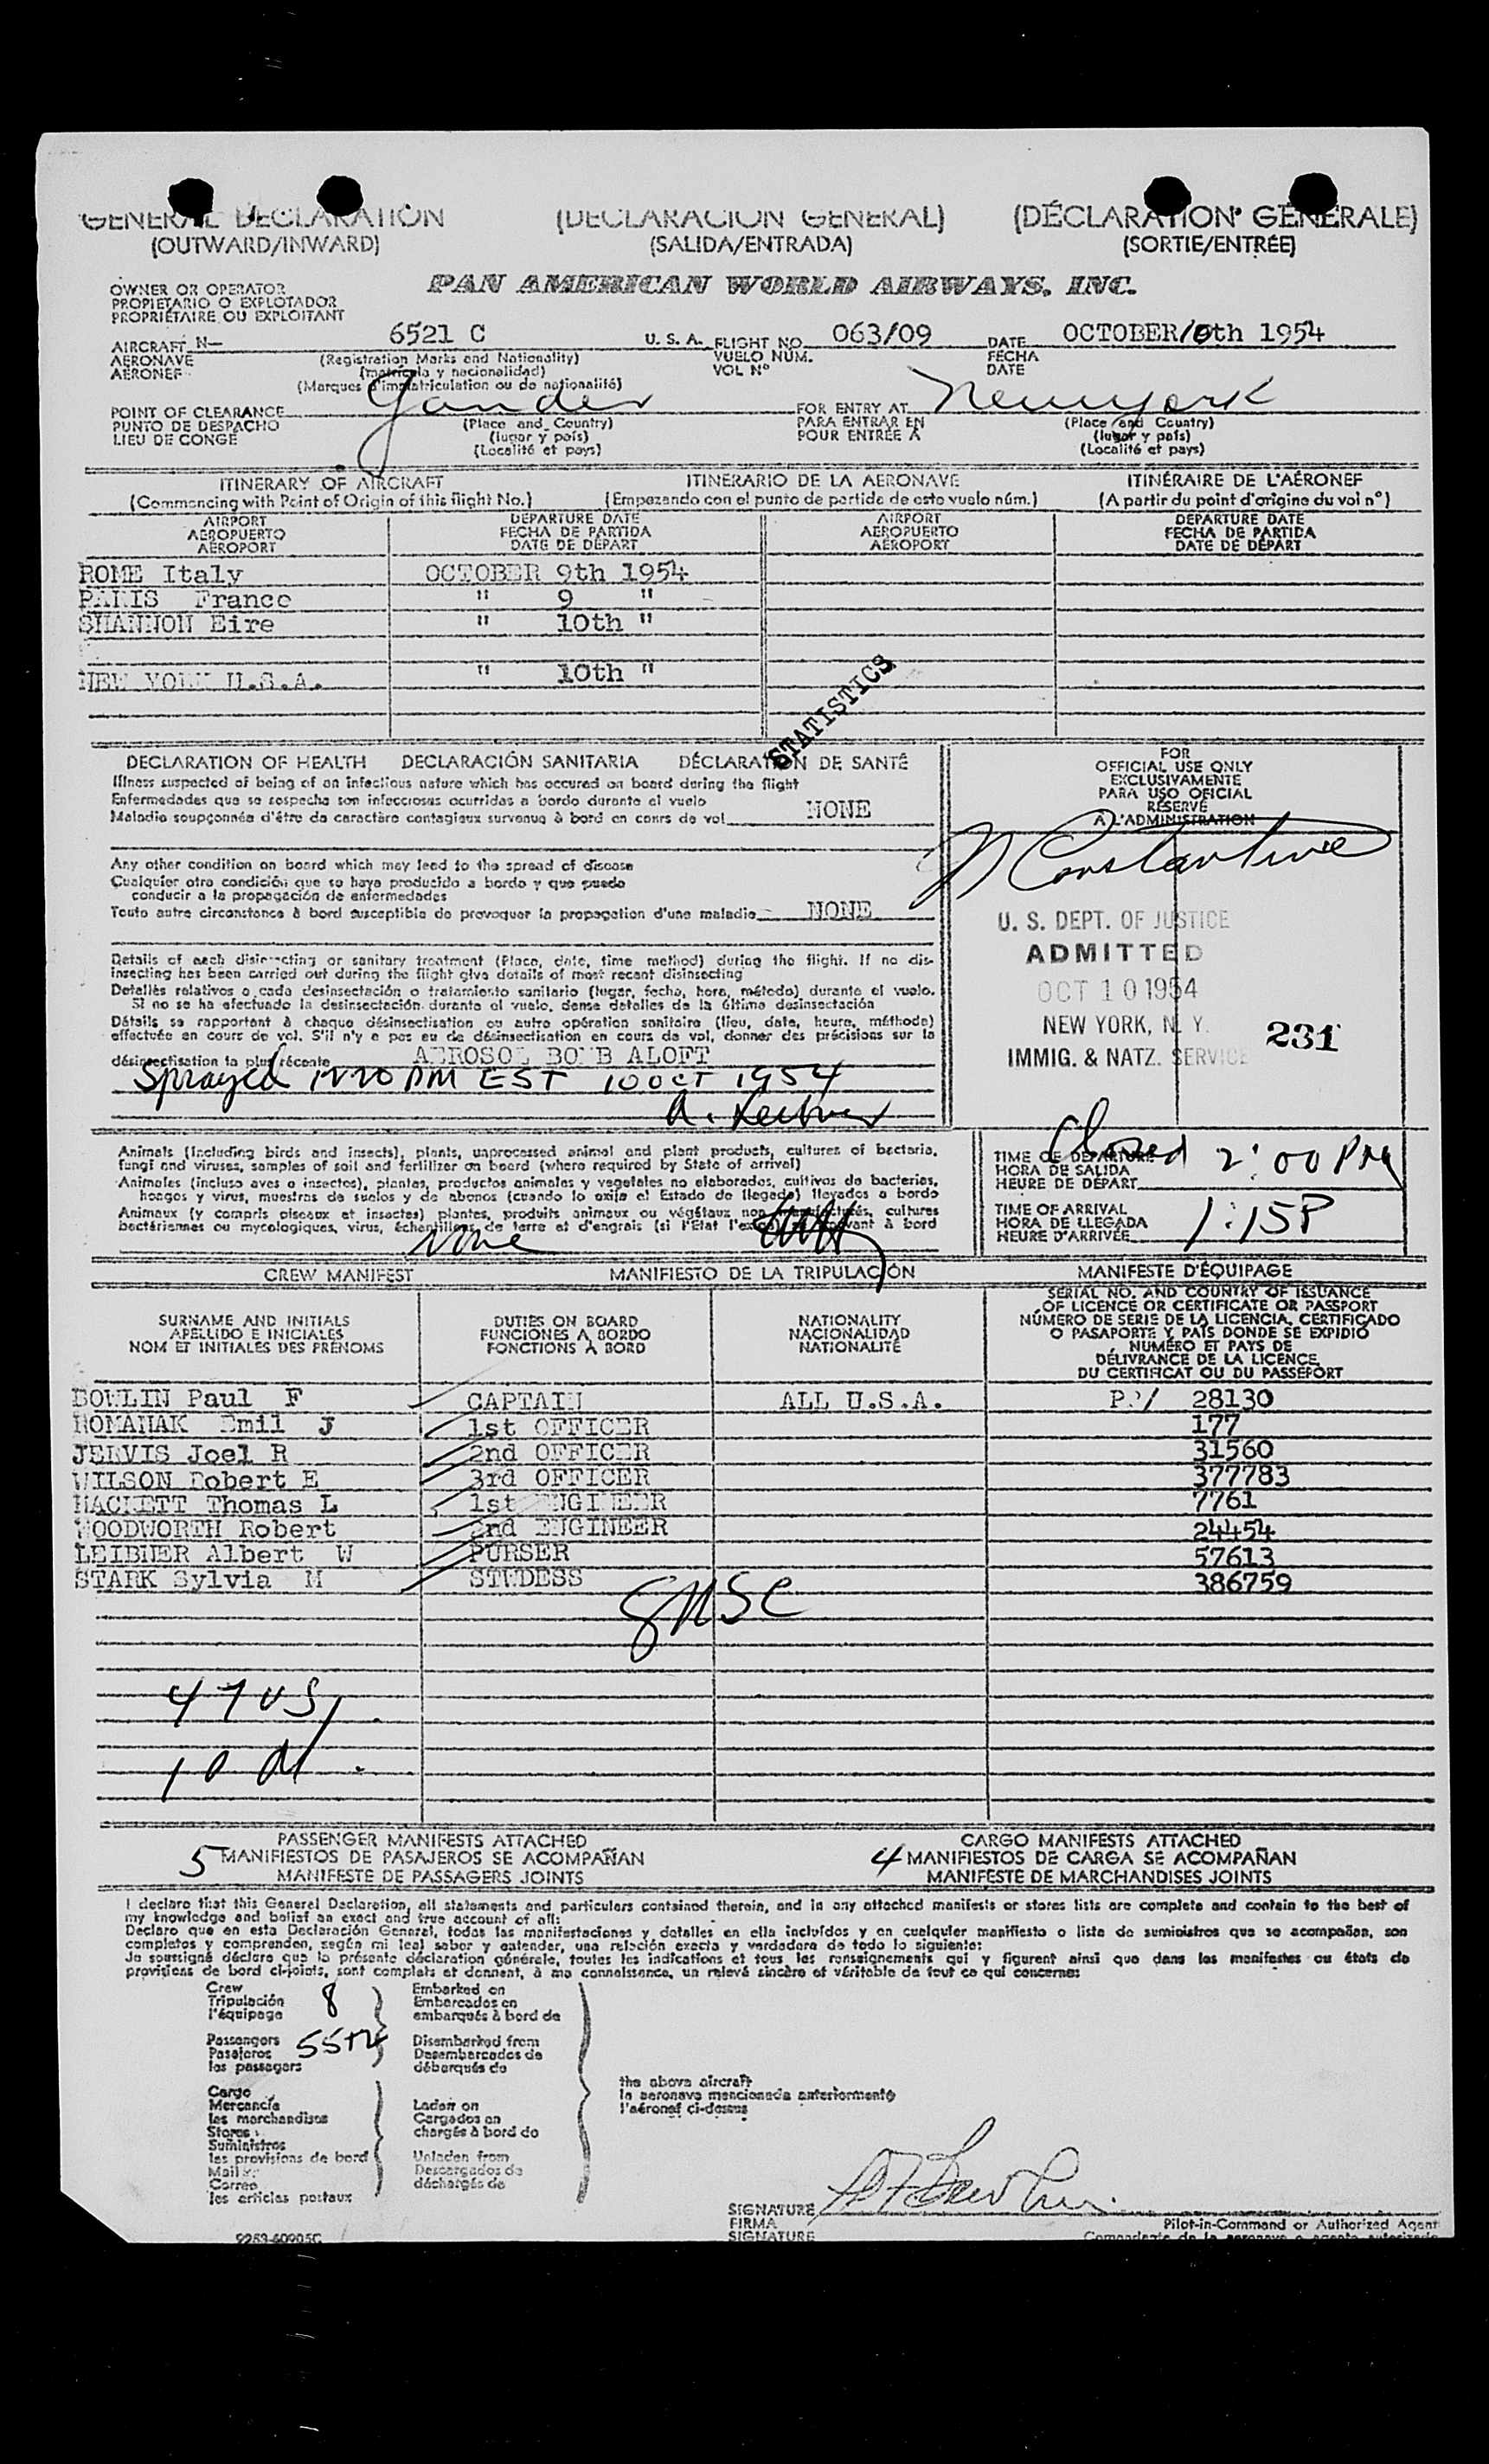 GENERAL DECLARATION (DECLARACION GENERAL) (DÉCLARATION GÉNÉRALE)
(OUTWARD/INWARD) (SALIDA/ENTRADA) (SORTIE/ENTRÉE)
OWNER OR OPERATOR PAN AMERICAN WORLD AIRWAYS, INC.
PROPIETARIO O EXPLOTADOR
PROPRIÉTAIRE OU EXPLOITANT
AIRCRAFT N- 6521 C U. S. A. FLIGHT NO. 063/09 DATE OCTOBER 10th 1954
AERONAVE (Registration Marks and Nationality) VUELO NÚM. FECHA
AÉRONEF (matrícula y nacionalidad) VOL Nº DATE
(Marques d'immatriculation ou de nationalité)
POINT OF CLEARANCE Gander FOR ENTRY AT New York
PUNTO DE DESPACHO (Place and Country) PARA ENTRAR EN (Place and Country)
LIEU DE CONGÉ (lugar y país) POUR ENTRÉE À (lugar y país)
(Localité et pays) (Localité et pays)
ITINERARY OF AIRCRAFT ITINERARIO DE LA AERONAVE ITINÉRAIRE DE L'AÉRONEF
(Commencing with Point of Origin of this flight No.) (Empezando con el punto de partida de este vuelo núm.) (A partir du point d'origine du vol nº)
AIRPORT DEPARTURE DATE AIRPORT DEPARTURE DATE
AEROPUERTO FECHA DE PARTIDA AEROPUERTO FECHA DE PARTIDA
AÉROPORT DATE DE DÉPART AÉROPORT DATE DE DÉPART
ROME Italy OCTOBER 9th 1954
PARIS France " 9 "
SHANNON Eire " 10th "
NEW YORK U.S.A. " 10th "
STATISTICS
DECLARATION OF HEALTH DECLARACIÓN SANITARIA DÉCLARATION DE SANTÉ
Illness suspected of being of an infectious nature which has occured on board during the flight
Enfermedades que se sospecha son infecciosas ocurridas a bordo durante el vuelo
Maladie soupçonnée d'être de caractère contagieux survenue à bord en cours de vol NONE
Any other condition on board which may lead to the spread of disease
Cualquier otra condición que se haya producido a bordo y que puede
conducir a la propagación de enfermedades
Toute autre circonstance à bord susceptible de provoquer la propagation d'une maladie NONE
Details of each disinsecting or sanitary treatment (Place, date, time method) during the flight. If no dis-
insecting has been carried out during the flight give details of most recent disinsecting
Detalles relativos a cada desinsectación o tratamiento sanitario (lugar, fecha, hora, método) durante el vuelo.
Si no se ha efectuado la desinsectación durante el vuelo, dense detalles de la última desinsectación
Détails se rapportant à chaque désinsectisation ou autre opération sanitaire (lieu, date, heure, méthode)
effectuée en cours de vol. S'il n'y a pas eu de désinsectisation en cours de vol, donner des précisions sur la
désinsectisation la plus récente AEROSOL BOMB ALOFT
Sprayed 1220 PM EST 10 OCT 1954
FOR
OFFICIAL USE ONLY
EXCLUSIVAMENTE
PARA USO OFICIAL
RÉSERVÉ
À L'ADMINISTRATION
Constantine
U. S. DEPT. OF JUSTICE
ADMITTED
OCT 10 1954
NEW YORK, N. Y. 231
IMMIG. & NATZ. SERVICE
Animals (including birds and insects), plants, unprocessed animal and plant products, cultures of bacteria,
fungi and viruses, samples of soil and fertilizer on board (where required by State of arrival)
Animales (incluso aves e insectos), plantas, productos animales y vegetales no elaborados, cultivos de bacterias,
hongos y virus, muestras de suelos y de abonos (cuando lo exija el Estado de llegada) llevados a bordo
Animaux (y compris oiseaux et insectes) plantes, produits animaux ou végétaux non manufacturés, cultures
bactériennes ou mycologiques, virus, échantillons de terre et d'engrais (si l'Etat l'exige) se trouvant à bord
None
TIME OF DEPARTURE Closed 2:00 PM
HORA DE SALIDA
HEURE DE DÉPART
TIME OF ARRIVAL
HORA DE LLEGADA 1:15P
HEURE D'ARRIVÉE
CREW MANIFEST MANIFIESTO DE LA TRIPULACIÓN MANIFESTE D'ÉQUIPAGE
SURNAME AND INITIALS DUTIES ON BOARD NATIONALITY SERIAL NO. AND COUNTRY OF ISSUANCE
APELLIDO E INICIALES FUNCIONES A BORDO NACIONALIDAD OF LICENCE OR CERTIFICATE OR PASSPORT
NOM ET INITIALES DES PRÉNOMS FONCTIONS À BORD NATIONALITÉ NÚMERO DE SERIE DE LA LICENCIA, CERTIFICADO
O PASAPORTE Y PAÍS DONDE SE EXPIDIÓ
NUMÉRO ET PAYS DE
DÉLIVRANCE DE LA LICENCE
DU CERTIFICAT OU DU PASSEPORT
BOWLIN Paul F CAPTAIN ALL U.S.A. PP/ 28130
ROMANAK Emil J 1st OFFICER 177
JERVIS Joel R 2nd OFFICER 31560
WILSON Robert E 3rd OFFICER 377783
HACKETT Thomas L 1st ENGINEER 7761
WOODWORTH Robert 2nd ENGINEER 24454
LEIBNER Albert W PURSER 57613
STARK Sylvia M STWDESS 386759
8 USC
47 US
10 Al
PASSENGER MANIFESTS ATTACHED CARGO MANIFESTS ATTACHED
5 MANIFIESTOS DE PASAJEROS SE ACOMPAÑAN 4 MANIFIESTOS DE CARGA SE ACOMPAÑAN
MANIFESTE DE PASSAGERS JOINTS MANIFESTE DE MARCHANDISES JOINTS
I declare that this General Declaration, all statements and particulars contained therein, and in any attached manifests or stores lists are complete and contain to the best of
my knowledge and belief an exact and true account of all:
Declaro que en esta Declaración General, todas las manifestaciones y detalles en ella incluídos y en cualquier manifiesto o lista de suministros que se acompañan, son
completos y comprenden, según mi leal saber y entender, una relación exacta y verdadera de todo lo siguiente:
Je soussigné déclare que la présente déclaration générale, toutes les indications et tous les renseignements qui y figurent ainsi que dans les manifestes ou états de
provisions de bord ci-joints, sont complets et donnent, à ma connaissance, un relevé sincère et véritable de tout ce qui concerne:
Crew Embarked on
Tripulación 8 Embarcados en
l'équipage embarqués à bord de
Passengers Disembarked from
Pasajeros 55+2 Desembarcados de
les passagers débarqués de
the above aircraft
la aeronave mencionada anteriormente
l'aéronef ci-dessus
Cargo
Mercancía Laden on
les marchandises Cargados en
Stores chargés à bord de
Suministros
les provisions de bord Unladen from
Mail Descargados de
Correo déchargés de
les articles postaux
SIGNATURE
FIRMA Pilot-in-Command or Authorized Agent
SIGNATURE Comandante de la aeronave o agente autorizado
9253-60905C